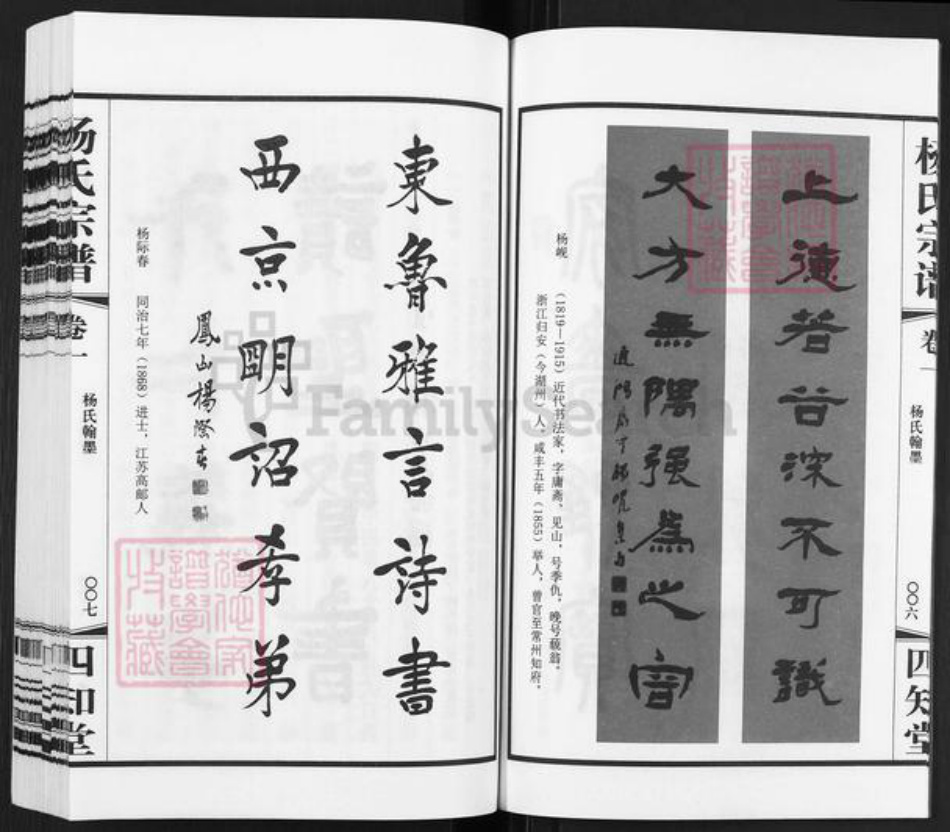 杨氏宗谱
卷一
杨氏翰墨
〇〇六
四知堂
上德若谷深不可識
大方無隅强為之容
杨岘
(1819—1915) 近代书法家，字庸斋、见山，号季仇，晚号藐翁，
浙江归安（今湖州）人。咸丰五年 (1855) 举人，曾官至常州知府，
東魯雅言詩書
西京明詔孝弟
鳳山楊際春
杨际春 同治七年 (1868) 进士，江苏高邮人
杨氏宗谱
卷一
杨氏翰墨
〇〇七
四知堂
FamilySearch